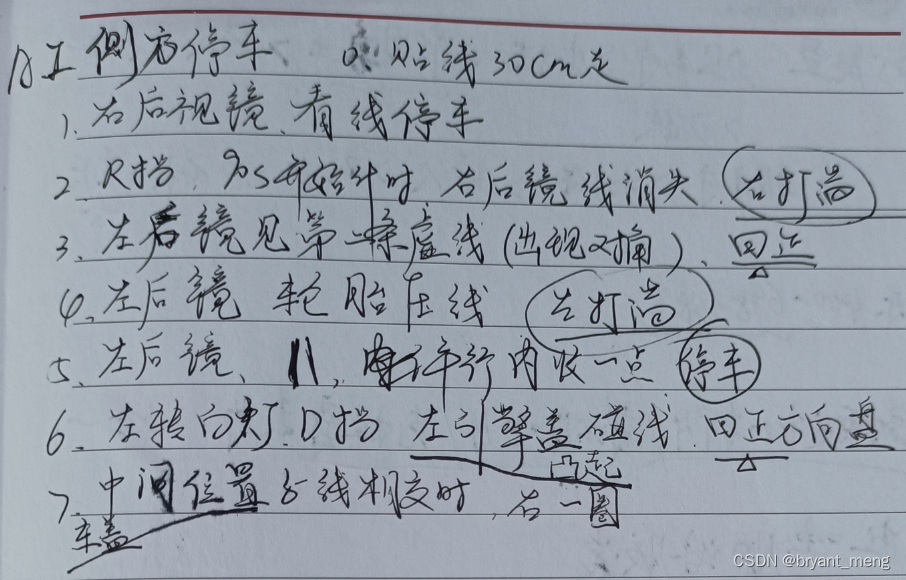 AI 侧方停车 0. 贴线30cm走
1. 右后视镜、看线停车
2. R挡、90s开始计时 右后镜线消失、右打满
3. 左后镜见第一条虚线(出现又角)、回正
4. 左后镜 轮胎压线 左打满
5. 左后镜、平行内收一点 停车
6. 左转向灯、D挡 左引擎盖碰线、回正方向盘
凸起
7. 中间位置与线相交时、右一圈
车盖
CSDN @bryant_meng